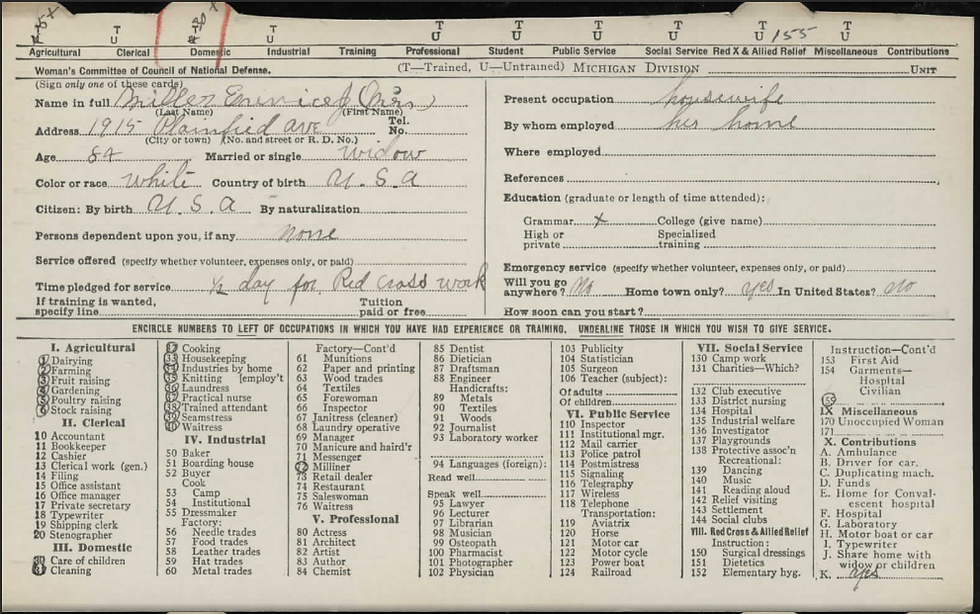 5 x 30 x
T T T T T T T T T T
U U U U U U U U U U 155
Agricultural Clerical Domestic Industrial Training Professional Student Public Service Social Service Red X & Allied Relief Miscellaneous Contributions
Woman's Committee of Council of National Defense. (T—Trained, U—Untrained) MICHIGAN DIVISION UNIT
(Sign only one of these cards)
Name in full Miller Eunice J (Mrs)
(Last Name) (First Name)
Address 1915 Plainfied ave Tel. No.
(City or town) (No. and street or R. D. No.)
Age 84 Married or single widow
Color or race white Country of birth U. S. A
Citizen: By birth U. S. A By naturalization
Persons dependent upon you, if any none
Service offered (specify whether volunteer, expenses only, or paid)
Time pledged for service ½ day for Red Cross work
If training is wanted, specify line Tuition paid or free
Present occupation housewife
By whom employed her home
Where employed
References
Education (graduate or length of time attended):
Grammar x College (give name)
High or private Specialized training
Emergency service (specify whether volunteer, expenses only, or paid)
Will you go anywhere? No Home town only? yes In United States? No
How soon can you start?
ENCIRCLE NUMBERS TO LEFT OF OCCUPATIONS IN WHICH YOU HAVE HAD EXPERIENCE OR TRAINING. UNDERLINE THOSE IN WHICH YOU WISH TO GIVE SERVICE.
I. Agricultural
1 Dairying
2 Farming
3 Fruit raising
4 Gardening
5 Poultry raising
6 Stock raising
II. Clerical
10 Accountant
11 Bookkeeper
12 Cashier
13 Clerical work (gen.)
14 Filing
15 Office assistant
16 Office manager
17 Private secretary
18 Typewriter
19 Shipping clerk
20 Stenographer
III. Domestic
30 Care of children
31 Cleaning
32 Cooking
33 Housekeeping
34 Industries by home
35 Knitting [employ't
36 Laundress
37 Practical nurse
38 Trained attendant
39 Seamstress
40 Waitress
IV. Industrial
50 Baker
51 Boarding house
52 Buyer
Cook
53 Camp
54 Institutional
55 Dressmaker
Factory:
56 Needle trades
57 Food trades
58 Leather trades
59 Hat trades
60 Metal trades
Factory—Cont'd
61 Munitions
62 Paper and printing
63 Wood trades
64 Textiles
65 Forewoman
66 Inspector
67 Janitress (cleaner)
68 Laundry operative
69 Manager
70 Manicure and haird'r
71 Messenger
72 Milliner
73 Retail dealer
74 Restaurant
75 Saleswoman
76 Waitress
V. Professional
80 Actress
81 Architect
82 Artist
83 Author
84 Chemist
85 Dentist
86 Dietician
87 Draftsman
88 Engineer
Handicrafts:
89 Metals
90 Textiles
91 Woods
92 Journalist
93 Laboratory worker
94 Languages (foreign):
Read well
Speak well
95 Lawyer
96 Lecturer
97 Librarian
98 Musician
99 Osteopath
100 Pharmacist
101 Photographer
102 Physician
103 Publicity
104 Statistician
105 Surgeon
106 Teacher (subject):
Of adults
Of children
VI. Public Service
110 Inspector
111 Institutional mgr.
112 Mail carrier
113 Police patrol
114 Postmistress
115 Signaling
116 Telegraphy
117 Wireless
118 Telephone
Transportation:
119 Aviatrix
120 Horse
121 Motor car
122 Motor cycle
123 Power boat
124 Railroad
VII. Social Service
130 Camp work
131 Charities—Which?
132 Club executive
133 District nursing
134 Hospital
135 Industrial welfare
136 Investigator
137 Playgrounds
138 Protective assoc'n
Recreational:
139 Dancing
140 Music
141 Reading aloud
142 Relief visiting
143 Settlement
144 Social clubs
VIII. Red Cross & Allied Relief
Instruction:
150 Surgical dressings
151 Dietetics
152 Elementary hyg.
Instruction—Cont'd
153 First Aid
154 Garments—
Hospital
Civilian
155
IX Miscellaneous
170 Unoccupied Woman
171
X. Contributions
A. Ambulance
B. Driver for car.
C. Duplicating mach.
D. Funds
E. Home for Conval-
escent hospital
F. Hospital
G. Laboratory
H. Motor boat or car
I. Typewriter
J. Share home with
widow or children
K. yes